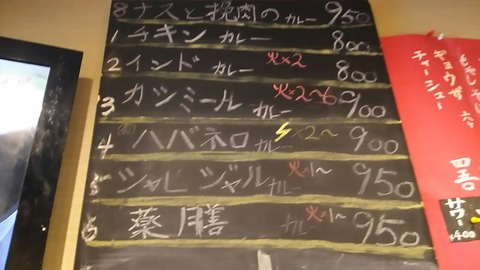 8 ナスと挽肉のカレー 950
1 チキンカレー 800
2 インドカレー 火×2 800
3 カシミールカレー 火×2~6 900
4 (仮)ハバネロカレー ⚡×2~ 900
5 シャヒジャルカレー 火×1~ 950
6 薬膳カレー 火×1~ 950
ギョウザ
チャーシュー
サワー
400